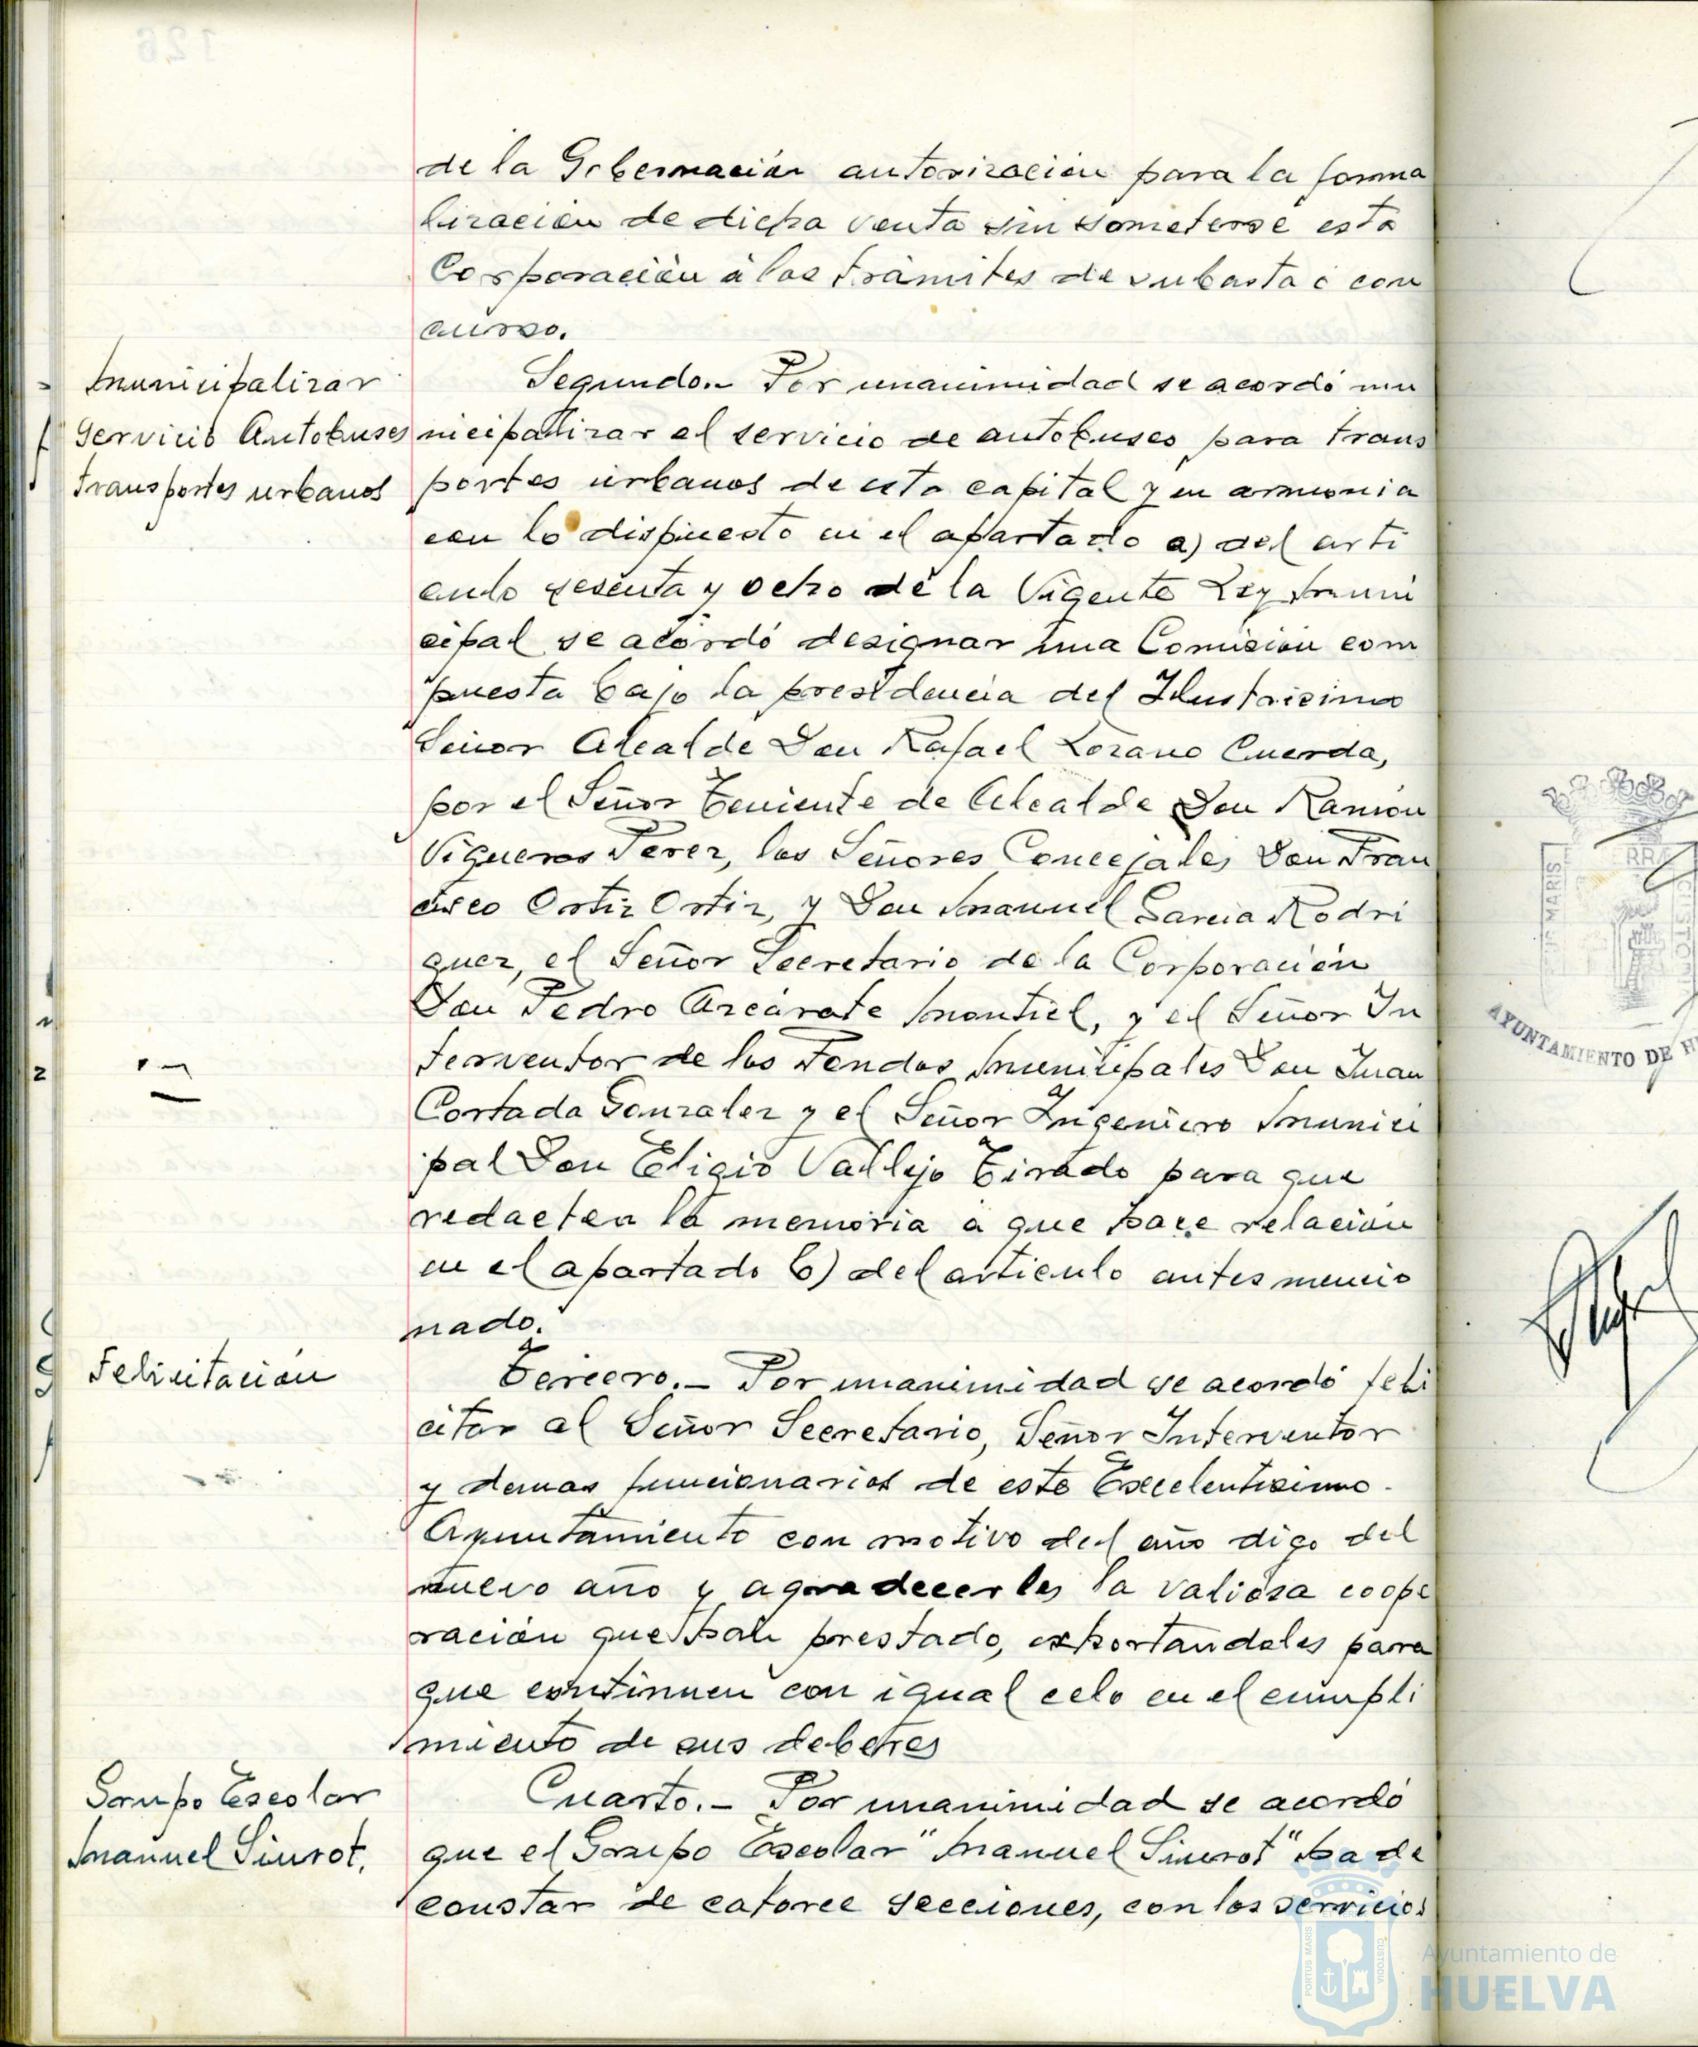 de la Gobernación autorización para la forma
lización de dicha venta sin someterse esta
Corporación á los trámites de subasta ó con
curso.
Municipalizar
Servicio Autobuses
transportes urbanos
Segundo.- Por unanimidad se acordó mu
nicipalizar el servicio de autobuses para trans
portes urbanos de esta capital y en armonia
con lo dispuesto en el apartado a) del arti
culo sesenta y ocho de la Vigente Ley Muni
cipal se acordó designar una Comisión com
puesta bajo la presidencia del Ilustrisimo
Señor Alcalde Don Rafael Lozano Cuerda,
por el Señor Teniente de Alcalde Don Ramón
Vigueras Perez, los Señores Concejales Don Fran
cisco Ortiz Ortiz, y Don Manuel Garcia Rodri
guez, el Señor Secretario de la Corporación
Don Pedro Azcárate Montiel, y el Señor In
terventor de los Fondos Municipales Don Juan
Cortada Gonzalez y el Señor Ingeniero Munici
pal Don Eligio Vallejo Tirado para que
redacten la memoria a que hace relación
en el apartado b) del articulo antes mencio
nado.
Felicitación
Tercero.- Por unanimidad se acordó feli
citar al Señor Secretario, Señor Interventor
y demas funcionarios de este Excelentisimo
Ayuntamiento con motivo del año digo del
nuevo año y agradecerles la valiosa coope
ración que han prestado, exhortandoles para
que continuen con igual celo en el cumpli
miento de sus deberes
Grupo Escolar
Manuel Siurot.
Cuarto.- Por unanimidad se acordó
que el Grupo Escolar "Manuel Siurot" ha de
constar de catorce secciones, con los servicios
AYUNTAMIENTO DE H
PORTUS MARIS
CUSTODIA
Ayuntamiento de
HUELVA